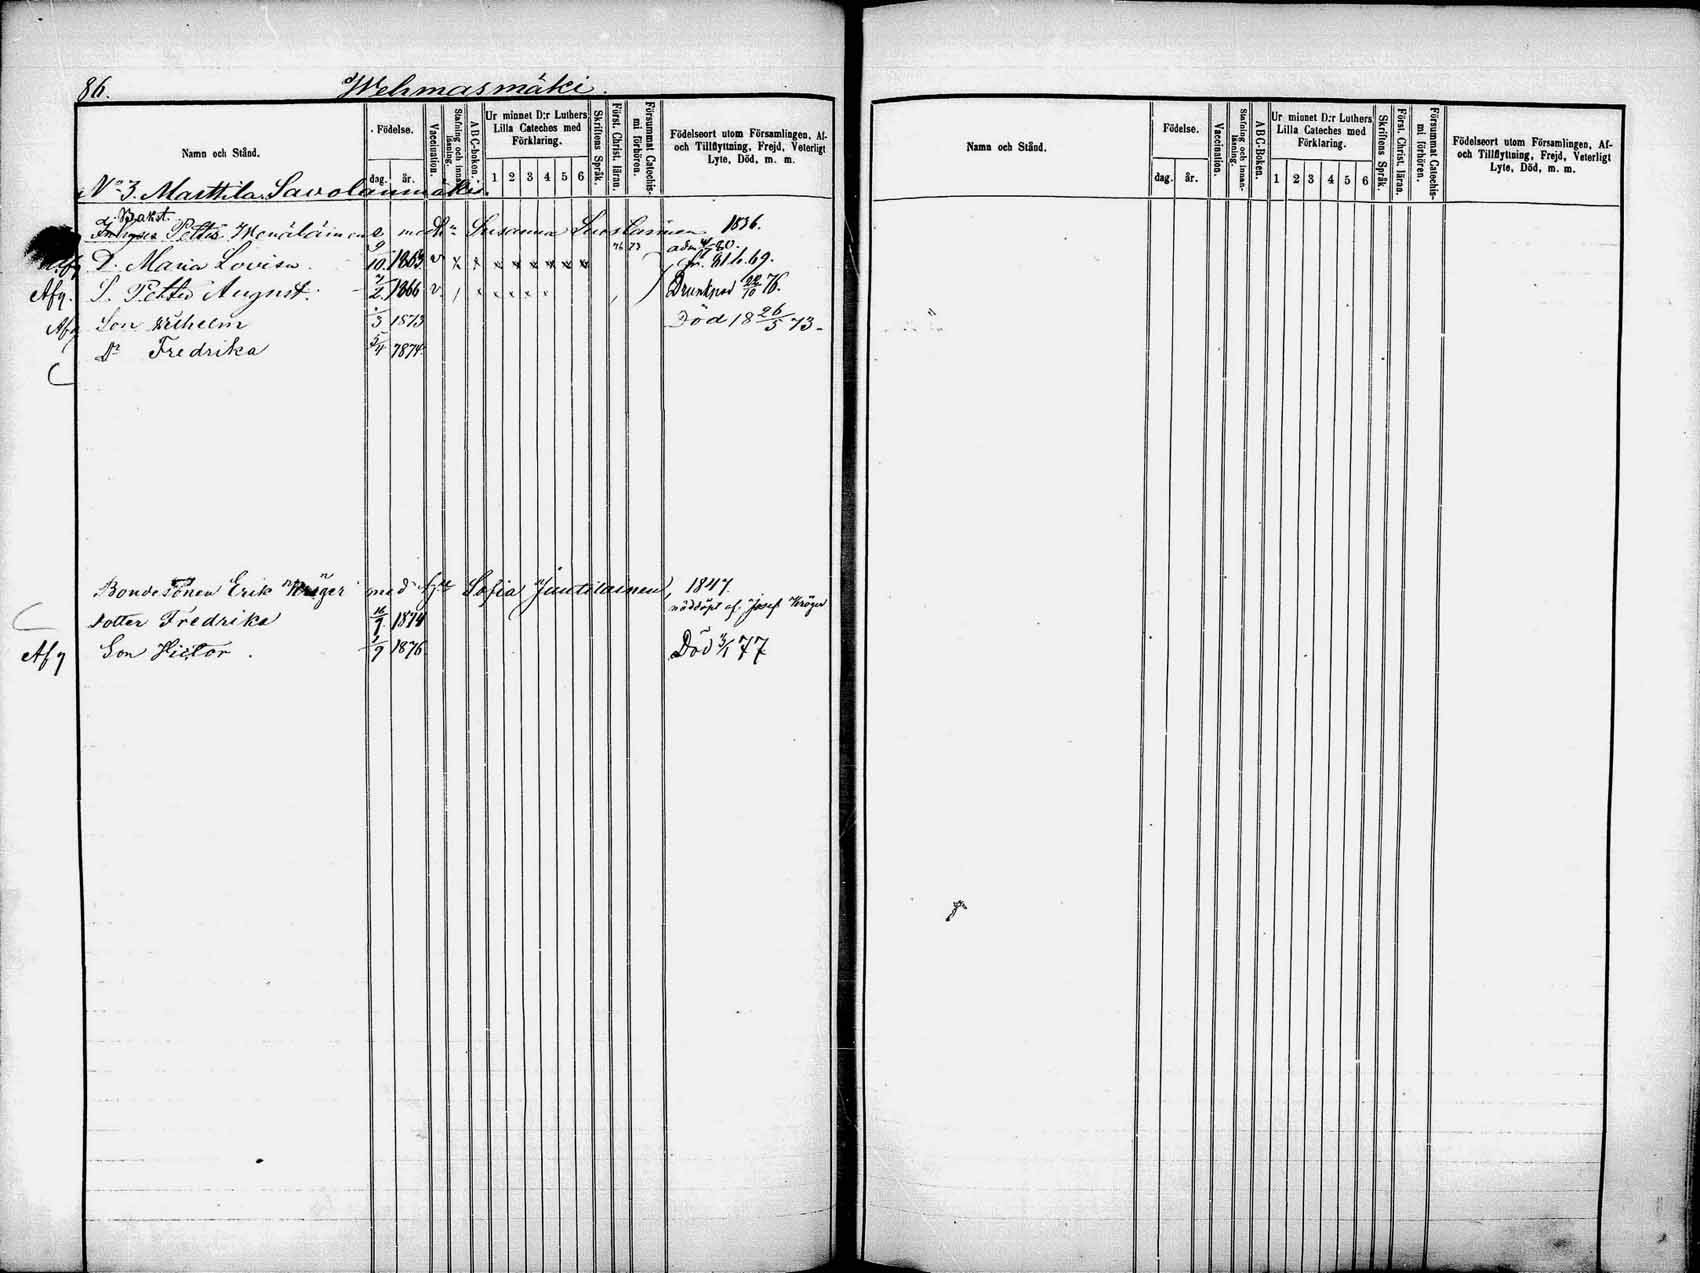 86. Wehmasmäki.
Namn och Stånd.
Födelse.
dag. år.
Vaccination.
Stafning och innan-läsning.
A B C-boken.
Ur minnet D:r Luthers
Lilla Cateches med
Förklaring.
1 2 3 4 5 6
Skriftens Språk.
Först. Christ. läran.
Försummat Catechis-
mi förhören.
Födelseort utom Församlingen, Af-
och Tillflyttning, Frejd, Veterligt
Lyte, Död, m. m.
No 3. Marttila Savolanmäki.
Bakst.
Petter med Susanna 1836.
Afg D. Maria Lovisa 10. 1863 v x x x x x x x x 76 73
Afg. S. Petter August. 2. 1866 v. Drunknad 22/10 76.
Afg Son Wilhelm 3 1873 Död 18 26/5 73.
Dr Fredrika 5/4 1874.
Bondesonen Erik Kröger med Sofia Juutilainen, 1847.
nöddöpt af Josef Kröger
Dotter Fredrika 1874
Afg Son Victor. 1/9 1876. Död 3/1 77
Namn och Stånd.
Födelse.
dag. år.
Vaccination.
Stafning och innan-läsning.
A B C-Boken.
Ur minnet D:r Luthers
Lilla Cateches med
Förklaring.
1 2 3 4 5 6
Skriftens Språk.
Först. Christ. läran.
Försummat Catechis-
mi förhören.
Födelseort utom Församlingen, Af-
och Tillflyttning, Frejd, Veterligt
Lyte, Död, m. m.